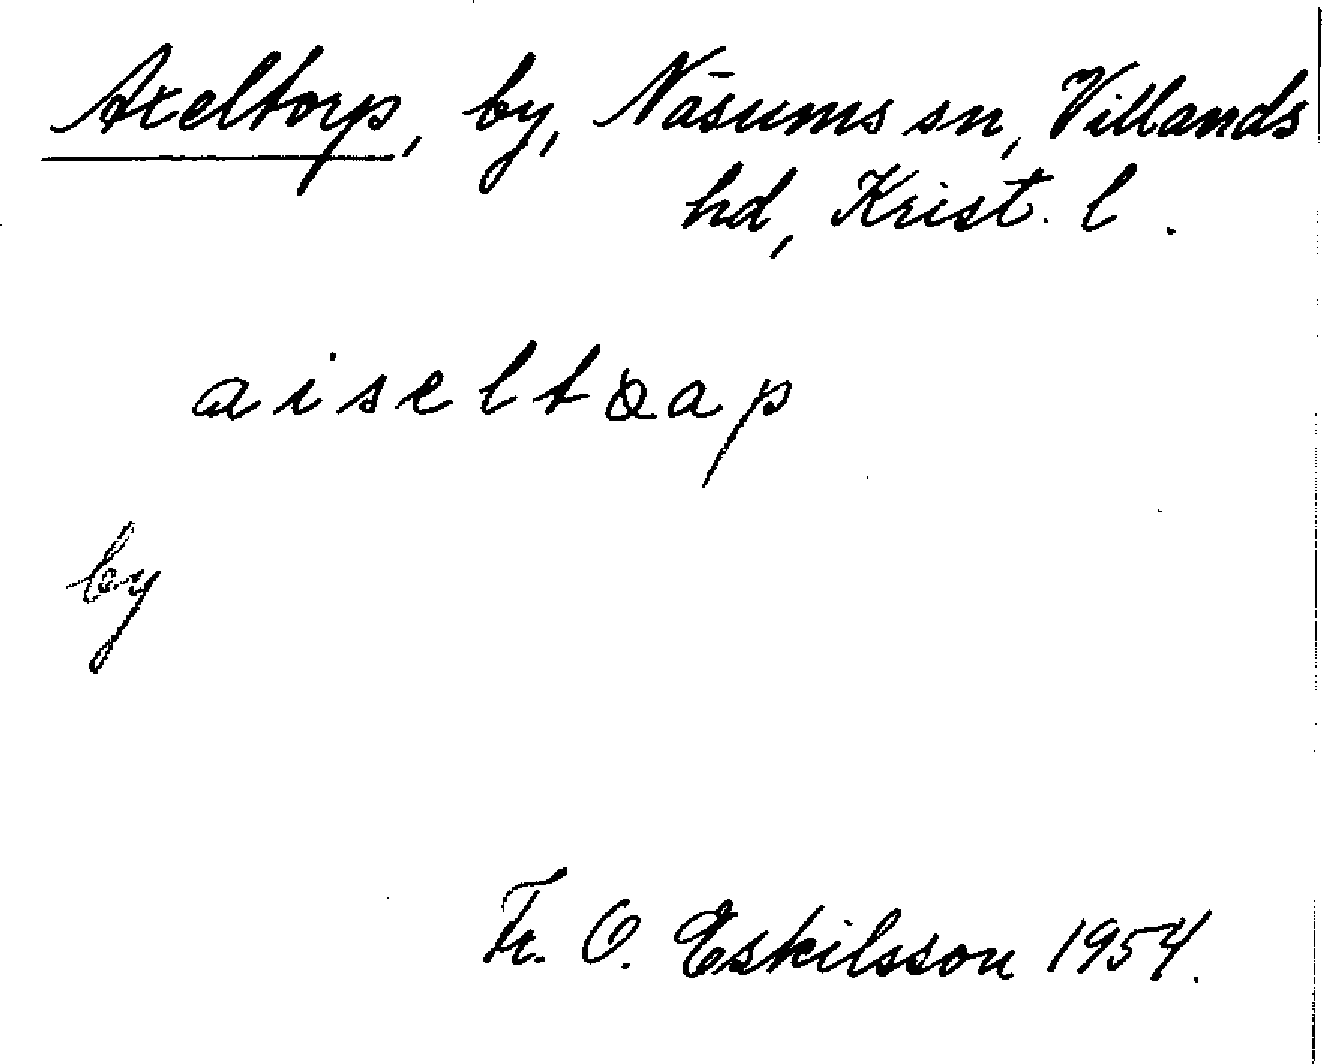 Axeltorp, by, Näsums sn, Villands
hd, Krist. l.
aiseltɒap
by
Fr. O. Eskilsson 1954.